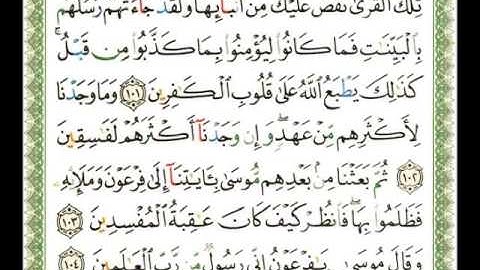 تِلْكَ ٱلْقُرَىٰ نَقُصُّ عَلَيْكَ مِنْ أَنۢبَآئِهَا وَلَقَدْ جَآءَتْهُمْ رُسُلُهُم
بِٱلْبَيِّنَٰتِ فَمَا كَانُوا۟ لِيُؤْمِنُوا۟ بِمَا كَذَّبُوا۟ مِن قَبْلُ ۚ
كَذَٰلِكَ يَطْبَعُ ٱللَّهُ عَلَىٰ قُلُوبِ ٱلْكَٰفِرِينَ ١٠١ وَمَا وَجَدْنَا
لِأَكْثَرِهِم مِّنْ عَهْدٍ ۖ وَإِن وَجَدْنَآ أَكْثَرَهُمْ لَفَٰسِقِينَ
١٠٢ ثُمَّ بَعَثْنَا مِنۢ بَعْدِهِم مُّوسَىٰ بِـَٔايَٰتِنَآ إِلَىٰ فِرْعَوْنَ وَمَلَإِي۟هِۦ
فَظَلَمُوا۟ بِهَا ۖ فَٱنظُرْ كَيْفَ كَانَ عَٰقِبَةُ ٱلْمُفْسِدِينَ ١٠٣
وَقَالَ مُوسَىٰ يَٰفِرْعَوْنُ إِنِّى رَسُولٌ مِّن رَّبِّ ٱلْعَٰلَمِينَ ١٠٤